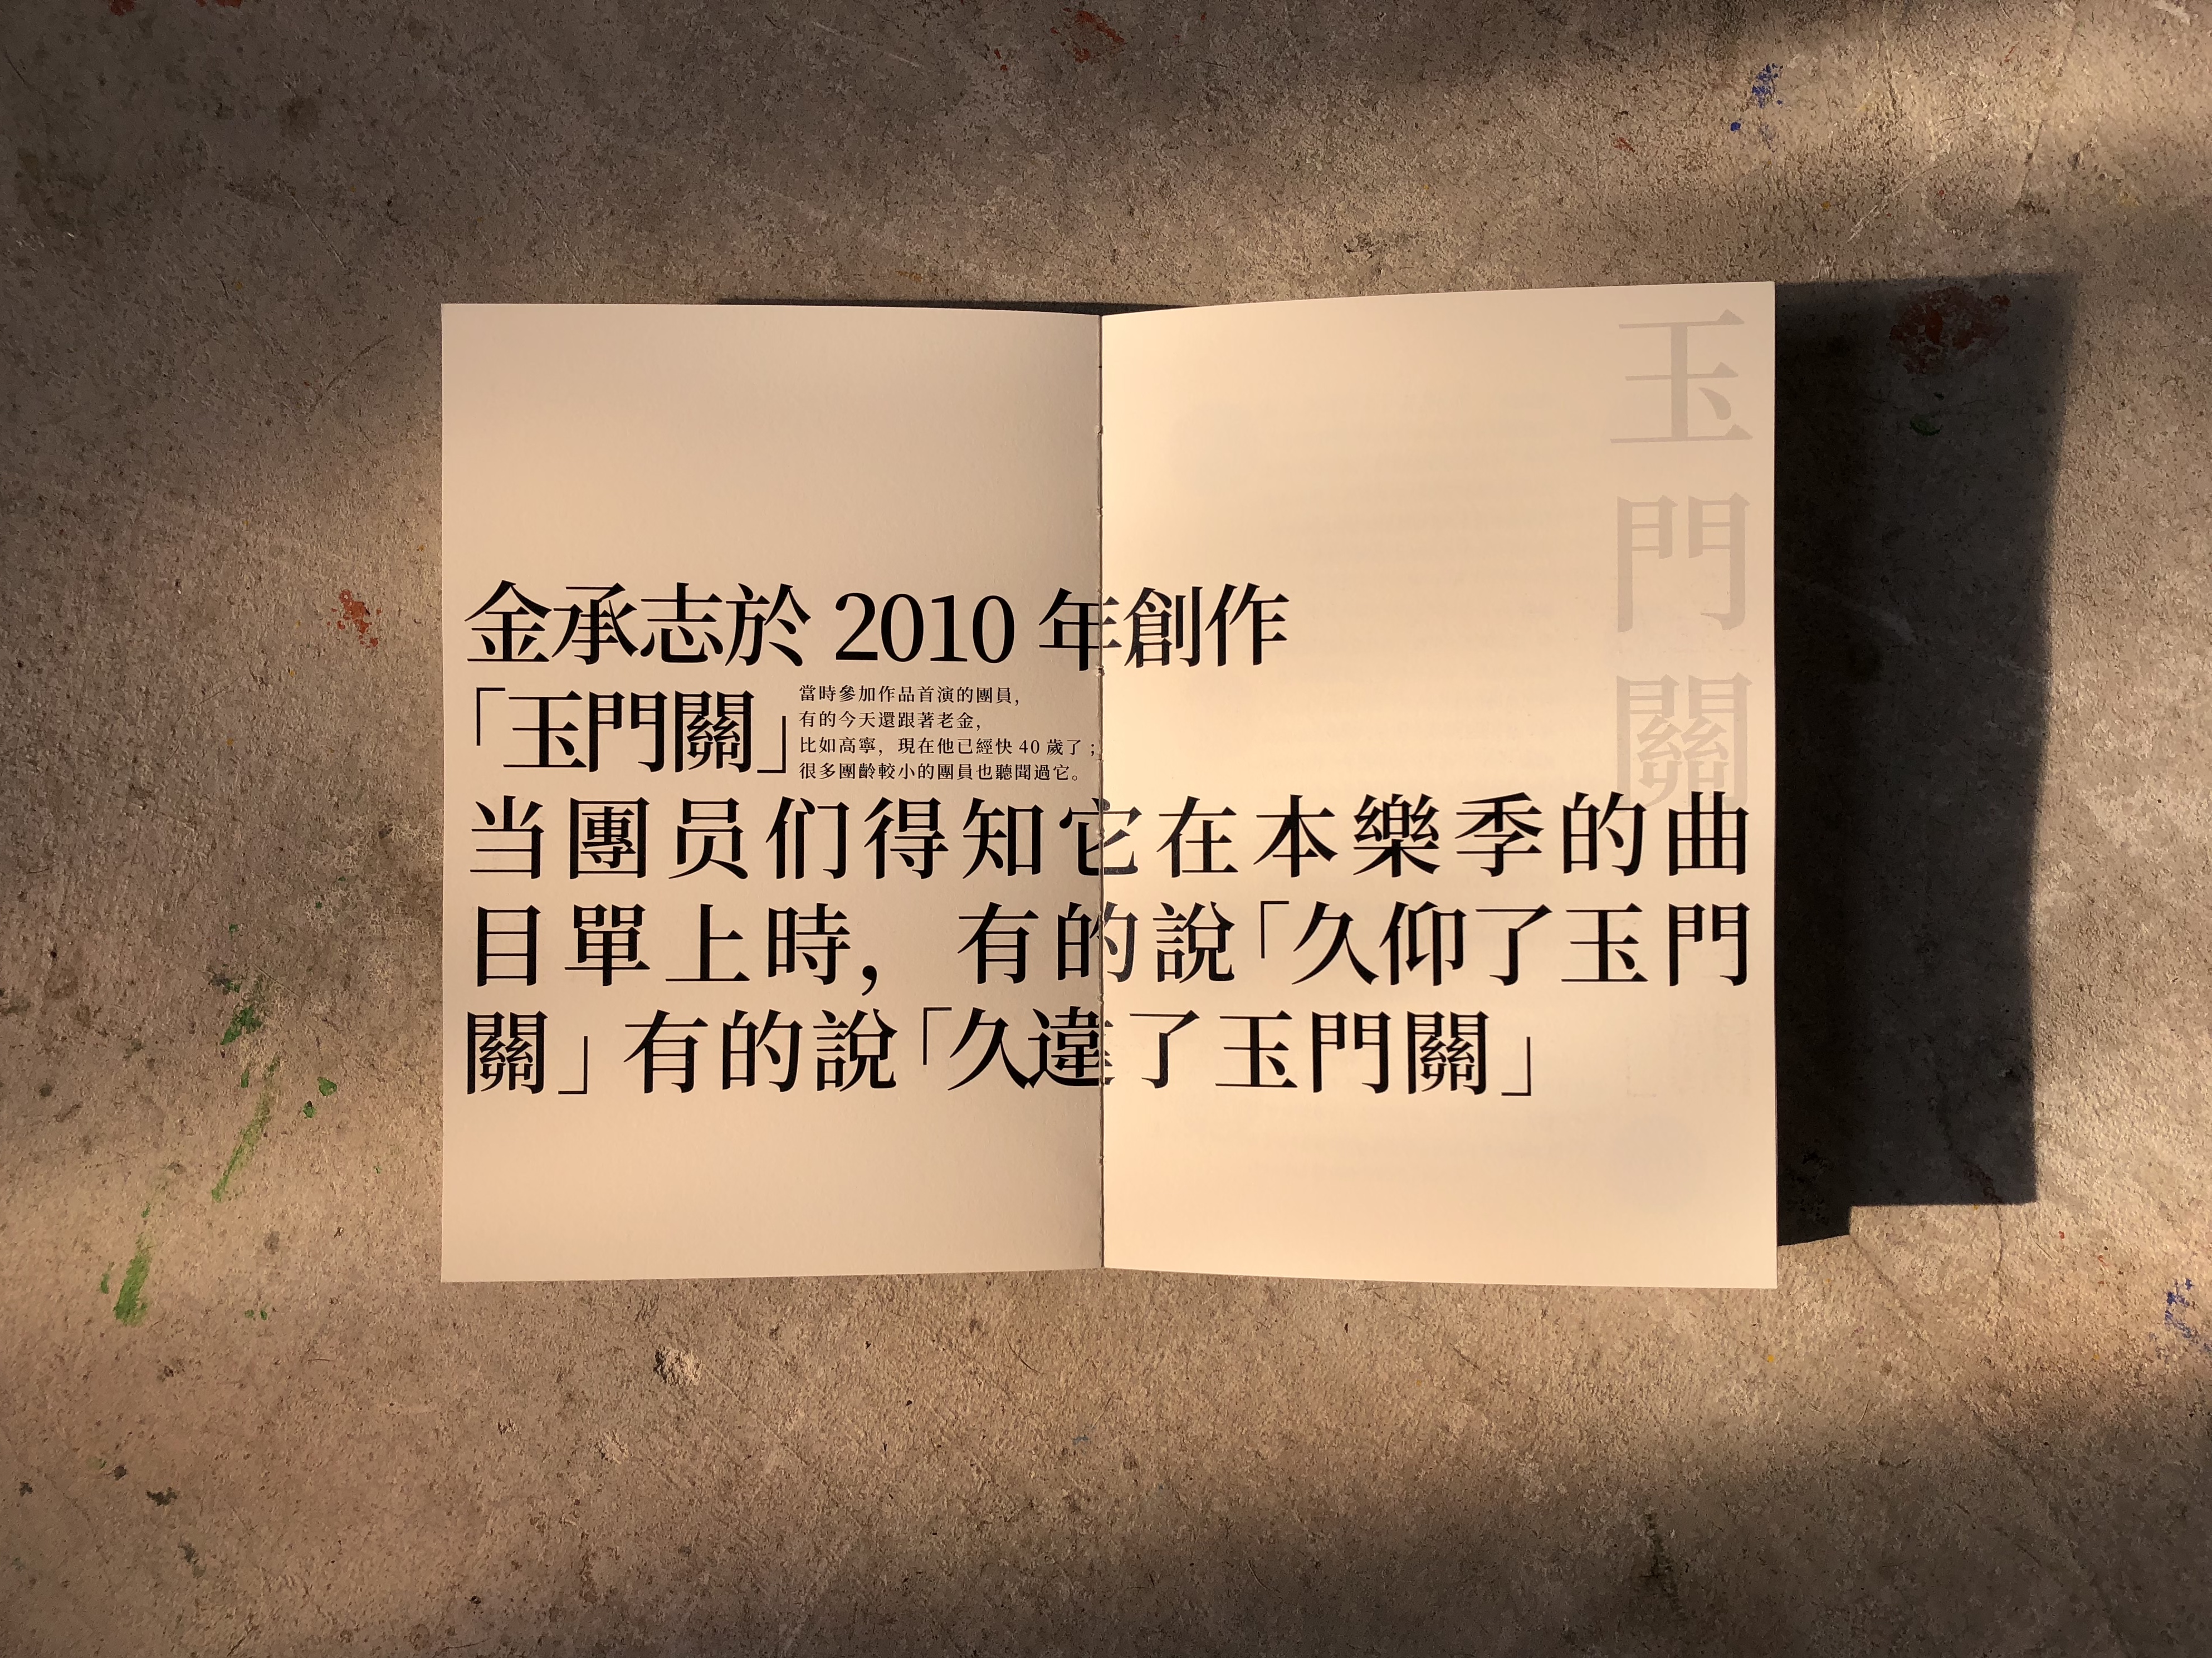 金承志於 2010 年創作
「玉門關」
當時參加作品首演的團員，
有的今天還跟著老金，
比如高寧，現在他已經快 40 歲了；
很多團齡較小的團員也聽聞過它。
当團员们得知它在本樂季的曲
目單上時，有的說「久仰了玉門
關」有的說「久違了玉門關」
玉門關